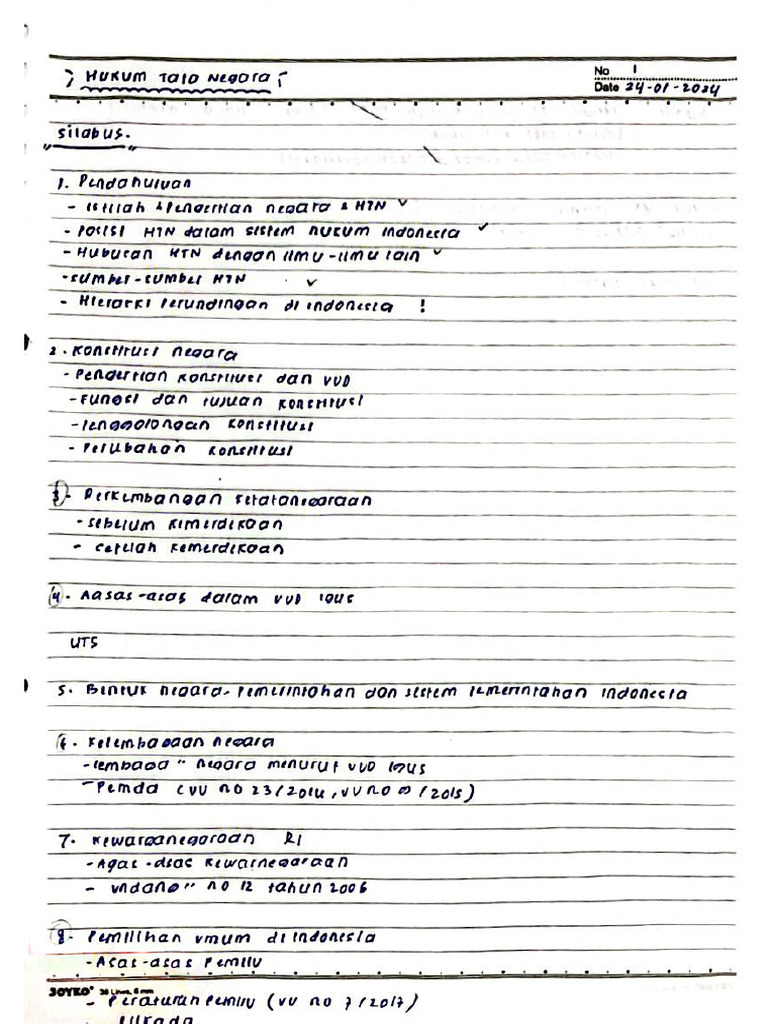 Hukum Tata Negara
No 1
Date 24-01-2024
Silabus.
1. Pendahuluan
- Istilah & Pengertian negara & HTN ✓
- Posisi HTN dalam sistem hukum Indonesia ✓
- Hubungan HTN dengan ilmu-ilmu lain ✓
- Sumber-sumber HTN ✓
- Hierarki Perundingan di Indonesia !
2. Konstitusi negara
- Pengertian konstitusi dan UUD
- Fungsi dan tujuan konstitusi
- Penggolongan konstitusi
- Perubahan konstitusi
3. Perkembangan Ketatanegaraan
- sebelum kemerdekaan
- setelah kemerdekaan
4. Aasas-asas dalam UUD 1945
UTS
5. Bentuk negara, Pemerintahan dan sistem pemerintahan Indonesia
6. Kelembagaan negara
- lembaga" negara menurut UUD 1945
- Pemda (UU no 23/2014, UU no /2015)
7. Kewarganegaraan RI
- Asas-asas kewarnegaraan
- Undang" no 12 tahun 2006
8. Pemilihan umum di Indonesia
- Asas-asas Pemilu
JOYKO 36 Lines, 6 mm
- Peraturan Pemilu (UU no 7/2017)
Pilkada